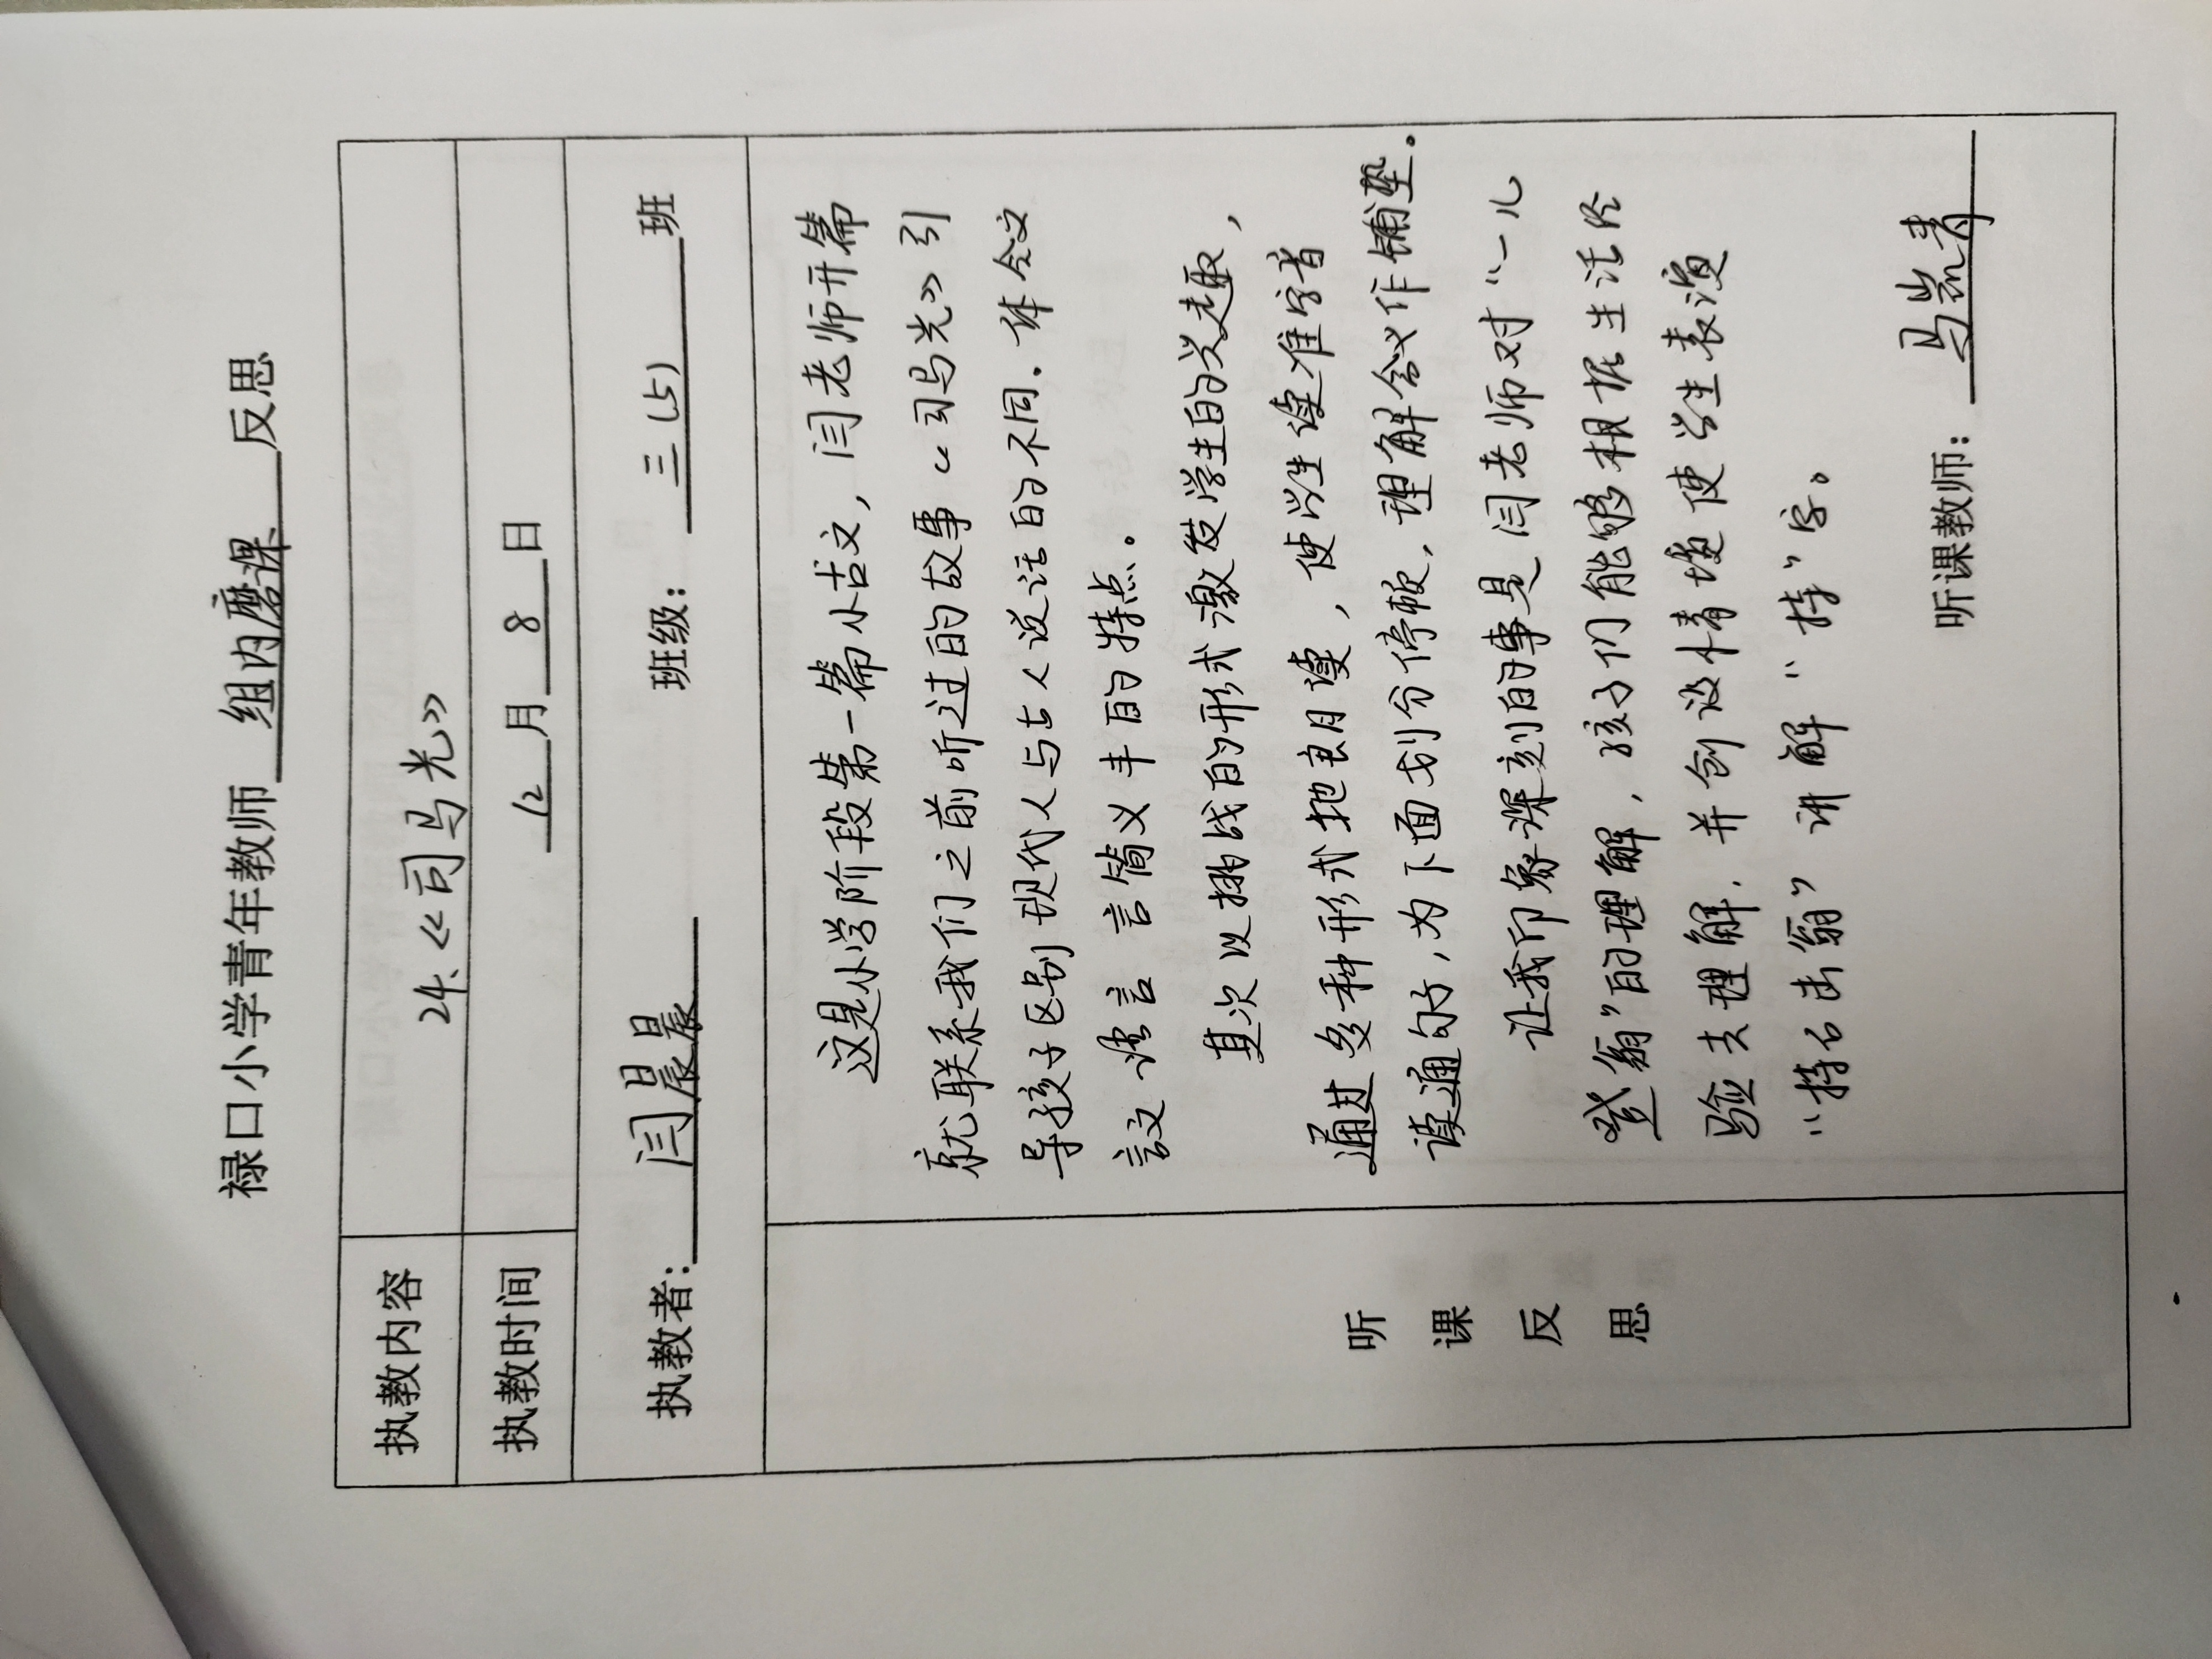 禄口小学青年教师 组内磨课 反思
执教内容 24.《司马光》
执教时间 12 月 8 日
执教者: 闫晨晨 班级: 三(5) 班
听课反思
这是小学阶段第一篇小古文，闫老师开篇
就联系我们之前听过的故事《司马光》引
导孩子区别现代人与古人说话的不同.体会文
言文语言 言简义丰的特点。
其次以挑战的形式激发学生的兴趣，
通过多种形式地朗读，使学生读准字音
读通句子,为下面划分停顿,理解含义作铺垫。
让我印象深刻的事是闫老师对“一儿
登瓮”的理解，孩子们能够根据生活经
验去理解.并创设情境使学生表演
“持石击瓮”讲解“持”字。
听课教师: 马岚青